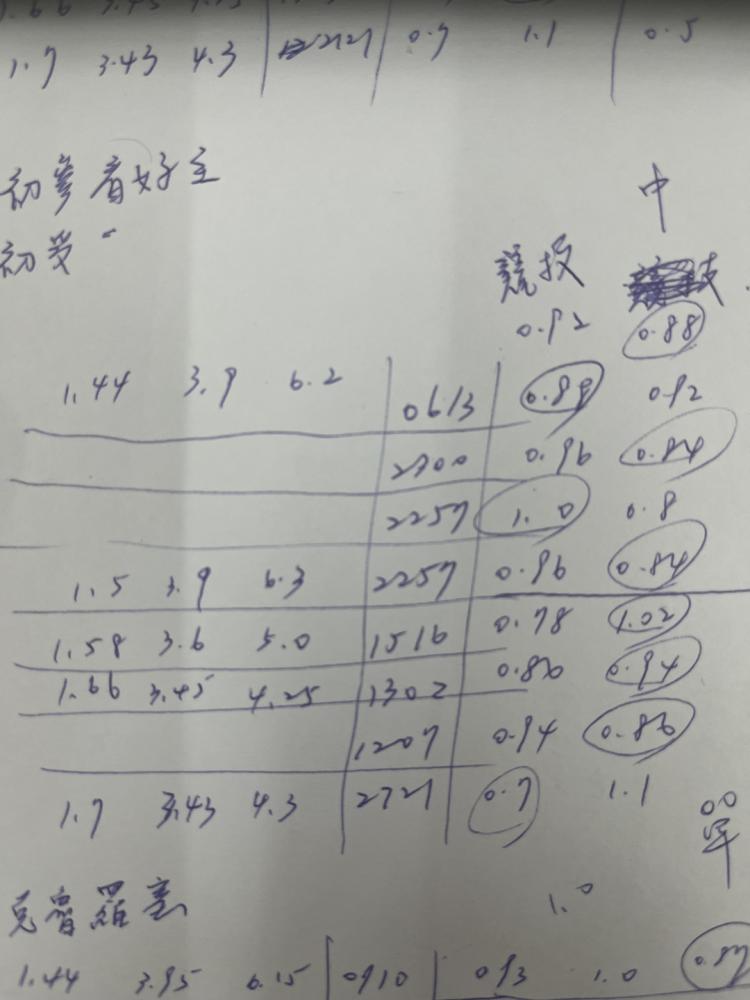 1.7 3.43 4.3 2721 0.7 1.1 0.5
初參看好主
初受 "
中
競投
0.92 0.88
1.44 3.9 6.2 0613 0.88 0.92
2700 0.96 0.84
2257 1.0 0.8
1.5 3.9 6.3 2257 0.96 0.84
1.58 3.6 5.0 1516 0.78 1.02
1.66 3.45 4.25 1302 0.86 0.94
1207 0.94 0.86
1.7 3.43 4.3 2721 0.7 1.1
單
克魯羅素
1.0
1.44 3.95 6.15 0910 0.93 1.0